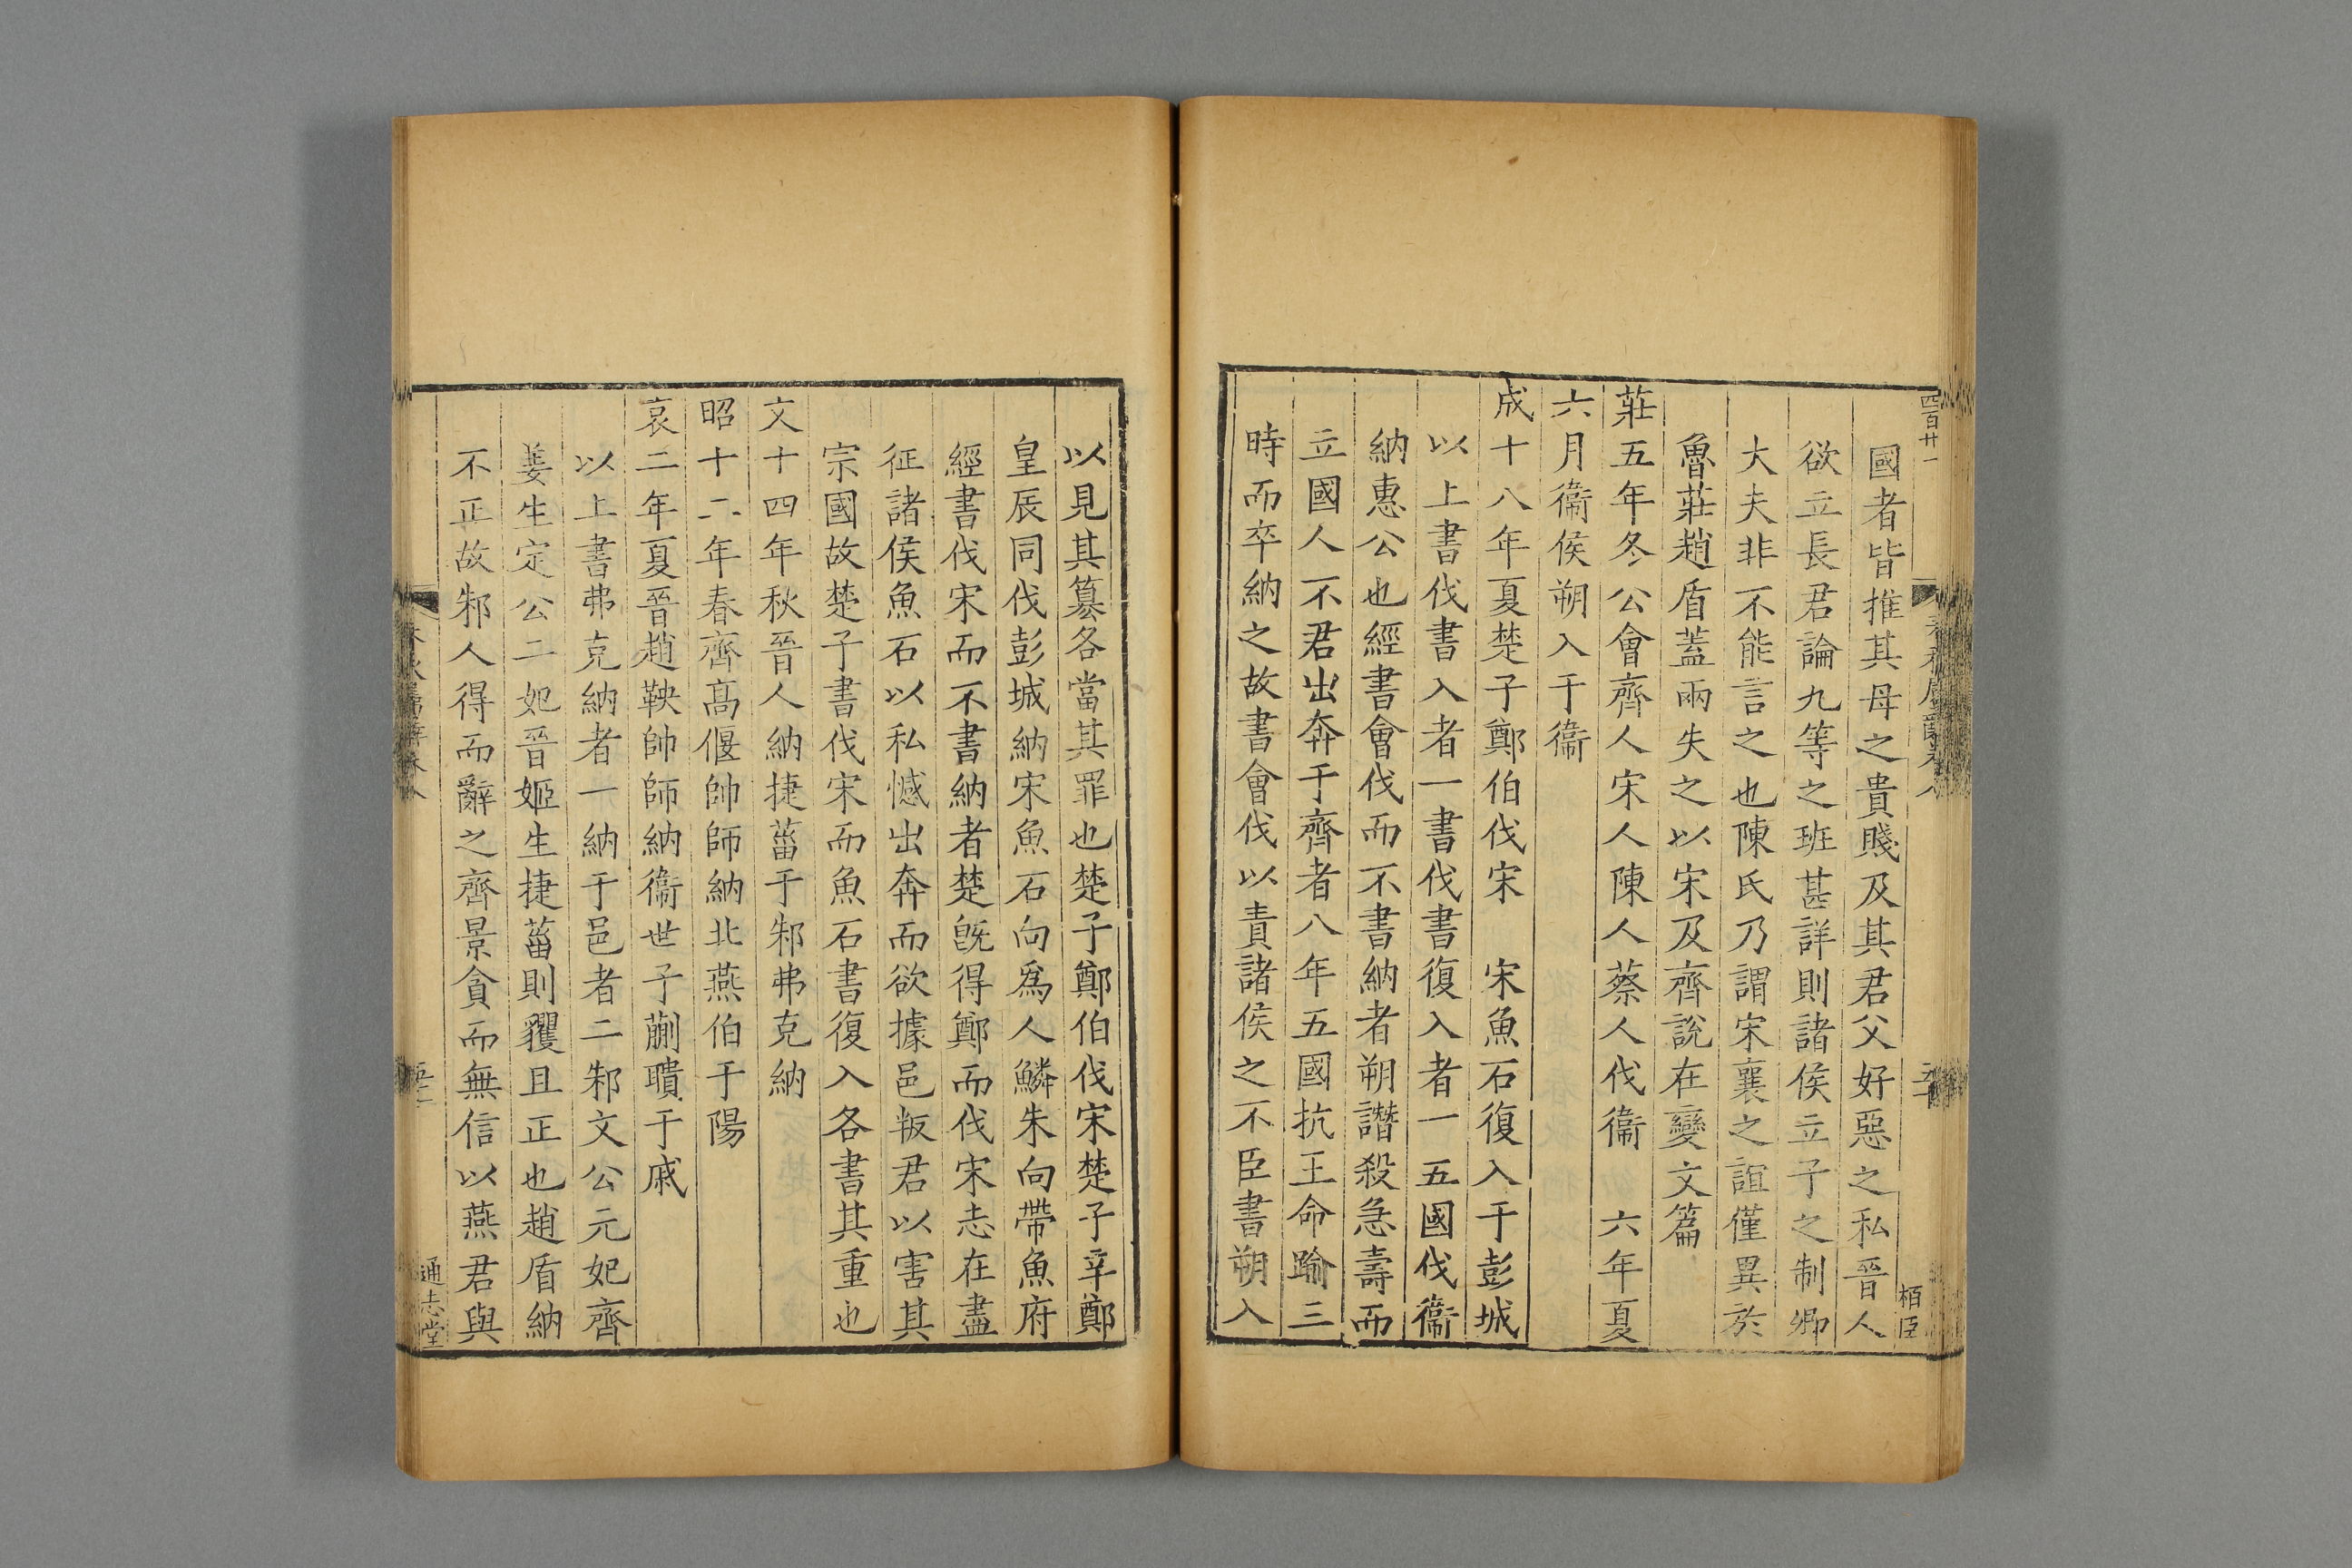 四百廿一
國者皆推其母之貴賤及其君父好惡之私晉人
欲立長君論九等之班甚詳則諸侯立子之制卿
大夫非不能言之也陳氏乃謂宋襄之誼僅異於
魯莊趙盾蓋兩失之以宋及齊說在變文篇
莊五年冬公會齊人宋人陳人蔡人伐衞 六年夏
六月衞侯朔入于衞
成十八年夏楚子鄭伯伐宋 宋魚石復入于彭城
以上書伐書入者一書伐書復入者一五國伐衞
納惠公也經書會伐而不書納者朔譖殺急壽而
立國人不君出奔于齊者八年五國抗王命踰三
時而卒納之故書會伐以責諸侯之不臣書朔入
栢臣
以見其篡各當其罪也楚子鄭伯伐宋楚子辛鄭
皇辰同伐彭城納宋魚石向爲人鱗朱向帶魚府
經書伐宋而不書納者楚旣得鄭而伐宋志在盡
征諸侯魚石以私憾出奔而欲據邑叛君以害其
宗國故楚子書伐宋而魚石書復入各書其重也
文十四年秋晉人納捷菑于邾弗克納
昭十二年春齊高偃帥師納北燕伯于陽
哀二年夏晉趙鞅帥師納衞世子蒯聵于戚
以上書弗克納者一納于邑者二邾文公元妃齊
姜生定公二妃晉姬生捷菑則貜且正也趙盾納
不正故邾人得而辭之齊景貪而無信以燕君與
通志堂